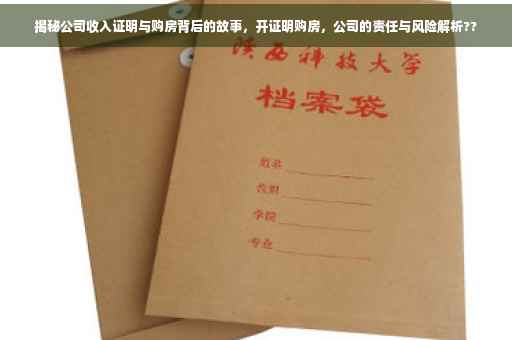 揭秘公司收入证明与购房背后的故事，开证明购房，公司的责任与风险解析??
陕西科技大学
档案袋
姓名
性别
学院
专业